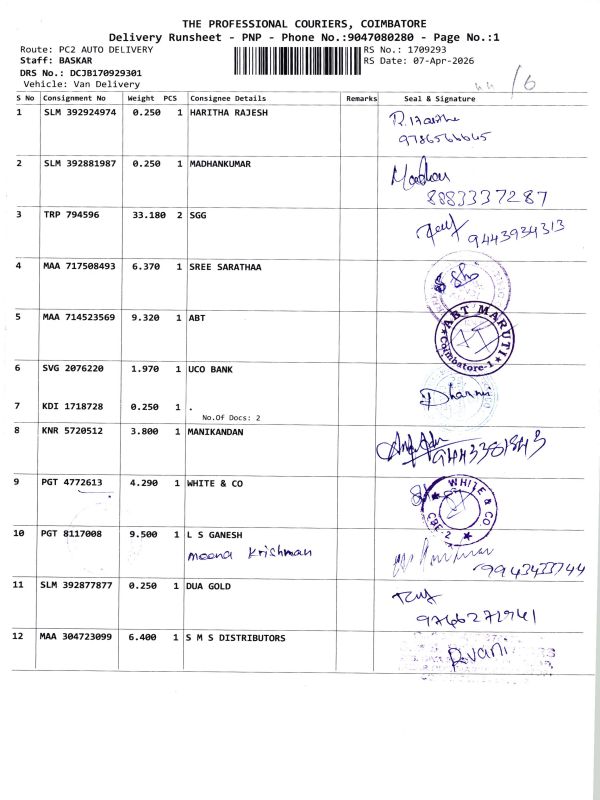 THE PROFESSIONAL COURIERS, COIMBATORE
Delivery Runsheet - PNP - Phone No.:9047080280 - Page No.:1
Route: PC2 AUTO DELIVERY RS No.: 1709293
Staff: BASKAR RS Date: 07-Apr-2026
DRS No.: DCJB170929301
Vehicle: Van Delivery
S No Consignment No Weight PCS Consignee Details Remarks Seal & Signature
1 SLM 392924974 0.250 1 HARITHA RAJESH
2 SLM 392881987 0.250 1 MADHANKUMAR
8883337287
3 TRP 794596 33.180 2 SGG
9443934313
4 MAA 717508493 6.370 1 SREE SARATHAA
5 MAA 714523569 9.320 1 ABT
ABT MARUTI
Coimbatore-1
6 SVG 2076220 1.970 1 UCO BANK
7 KDI 1718728 0.250 1 .
No.Of Docs: 2
8 KNR 5720512 3.800 1 MANIKANDAN
9443381843
9 PGT 4772613 4.290 1 WHITE & CO
WHITE & CO.
CBE-2
10 PGT 8117008 9.500 1 L S GANESH
meena Krishman
9943433744
11 SLM 392877877 0.250 1 DUA GOLD
12 MAA 304723099 6.400 1 S M S DISTRIBUTORS
R.vani